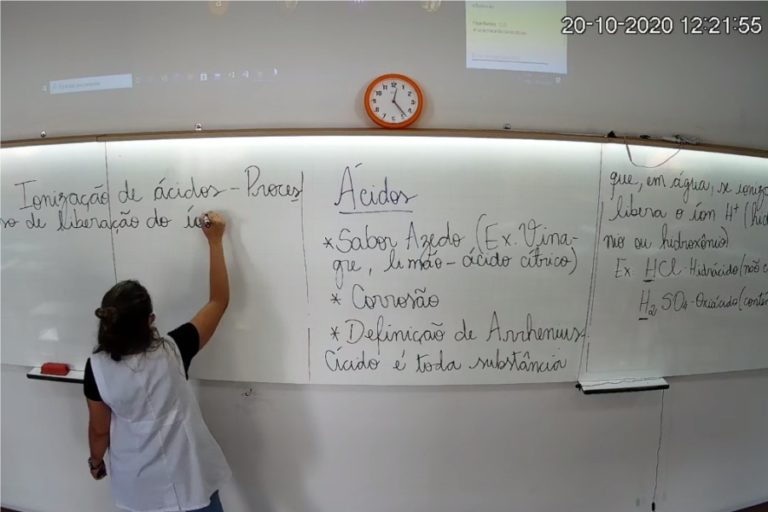 20-10-2020 12:21:55
Ionização de ácidos - Proces
so de liberação do
Ácidos
*Sabor Azedo (Ex. Vina-
gre, limão - ácido cítrico)
* Corrosão
* Definição de Arrhenius
Ácido é toda substância
que, em água, se
libera o íon H⁺
nio ou hidroxônio)
Ex HCl - Hidrácido
H₂ SO₄ - Oxiácido